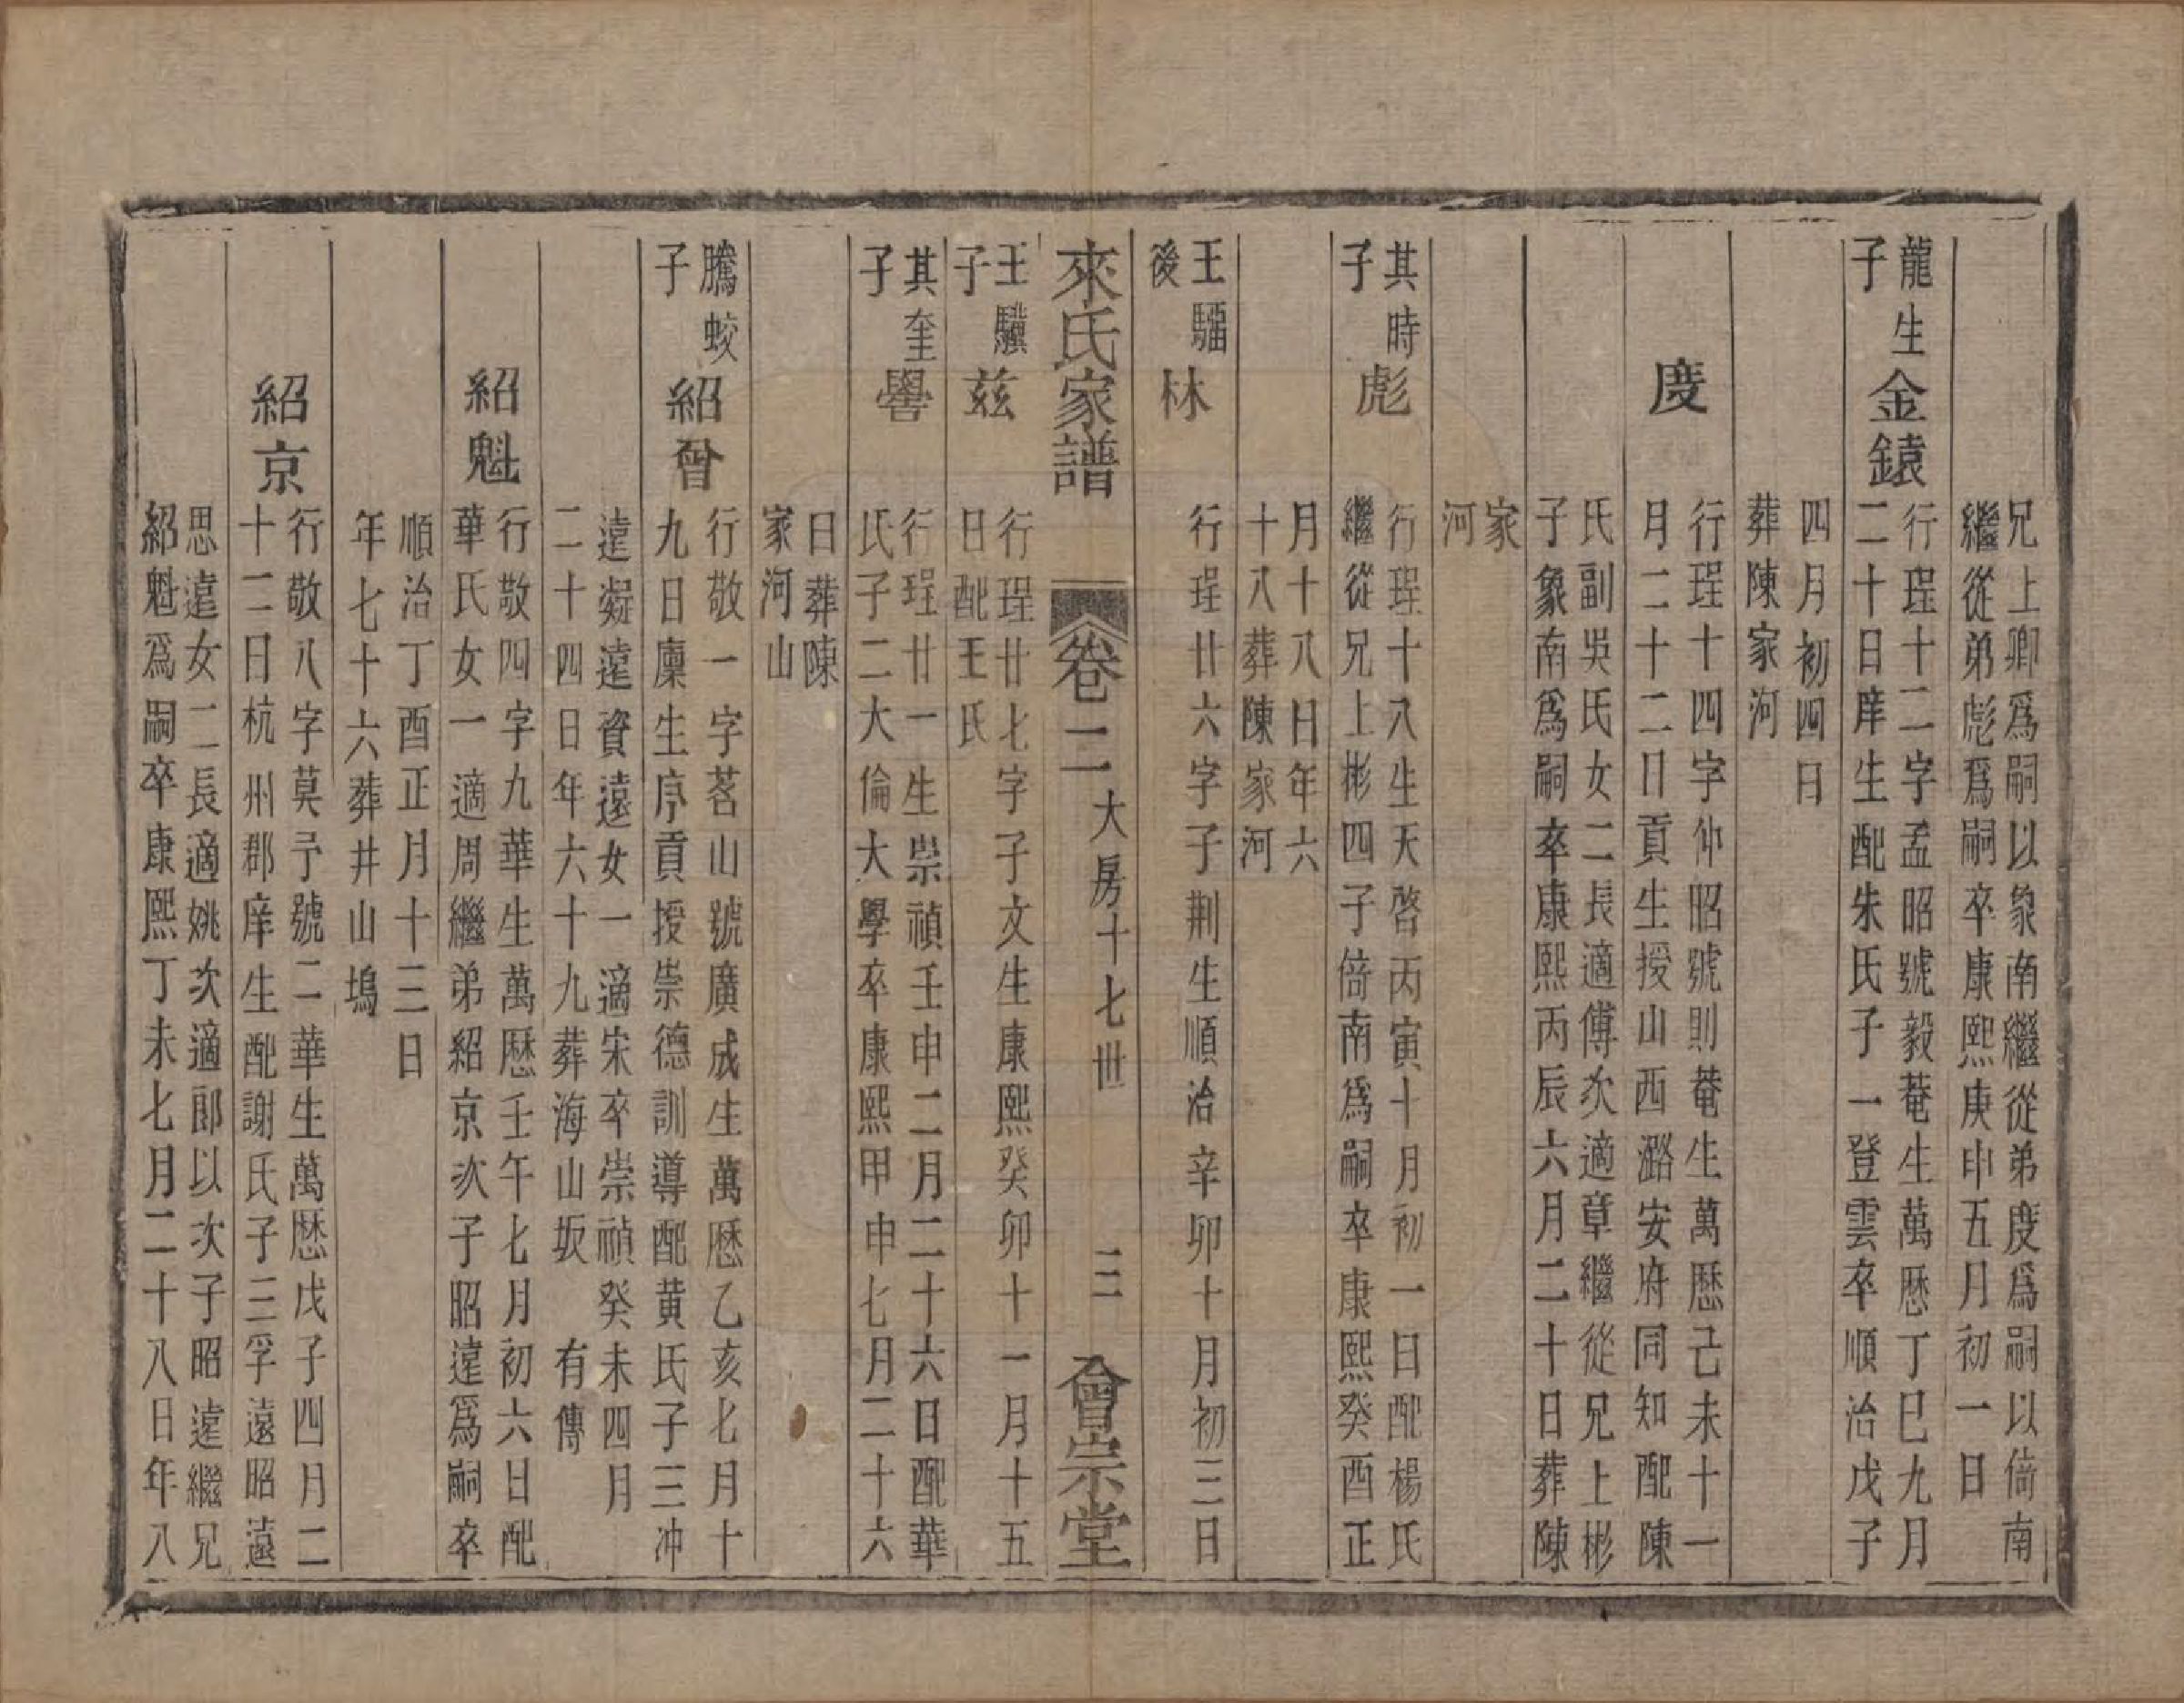 兄上卿爲嗣以象南繼從弟度爲嗣以倚南
繼從弟彪爲嗣卒康熙庚申五月初一日
龍生子
金鎱
行珵十二字孟昭號毅菴生萬歷丁巳九月
二十日庠生配朱氏子一登雲卒順治戊子
四月初四日
葬陳家河
度
行珵十四字仲昭號則菴生萬歷己未十一
月二十二日貢生授山西潞安府同知配陳
氏副吳氏女二長適傅次適章繼從兄上彬
子象南爲嗣卒康熙丙辰六月二十日葬陳
家
河
其時子
彪
行珵十八生天啓丙寅十月初一日配楊氏
繼從兄上彬四子倚南爲嗣卒康熙癸酉正
月十八日年六
十八葬陳家河
王騮後
林
行珵廿六字子荆生順治辛卯十月初三日
來氏家譜
卷二
大房十七世
三
會宗堂
王驥子
茲
行珵廿七字子文生康熙癸卯十一月十五
日配王氏
其奎子
譽
行珵廿一生崇禎壬申二月二十六日配華
氏子二大倫大學卒康熙甲申七月二十六
日葬陳
家河山
騰蛟子
紹曾
行敬一字茗山號廣成生萬歷乙亥七月十
九日廩生序貢授崇德訓導配黃氏子三冲
遠凝遠資遠女一適宋卒崇禎癸未四月
二十四日年六十九葬海山坂 有傳
紹魁
行敬四字九華生萬歷壬午七月初六日配
華氏女一適周繼弟紹京次子昭遠爲嗣卒
順治丁酉正月十三日
年七十六葬井山塢
紹京
行敬八字莫予號二華生萬歷戊子四月二
十二日杭州郡庠生配謝氏子三孚遠昭遠
思遠女二長適姚次適郎以次子昭遠繼兄
紹魁爲嗣卒康熙丁未七月二十八日年八